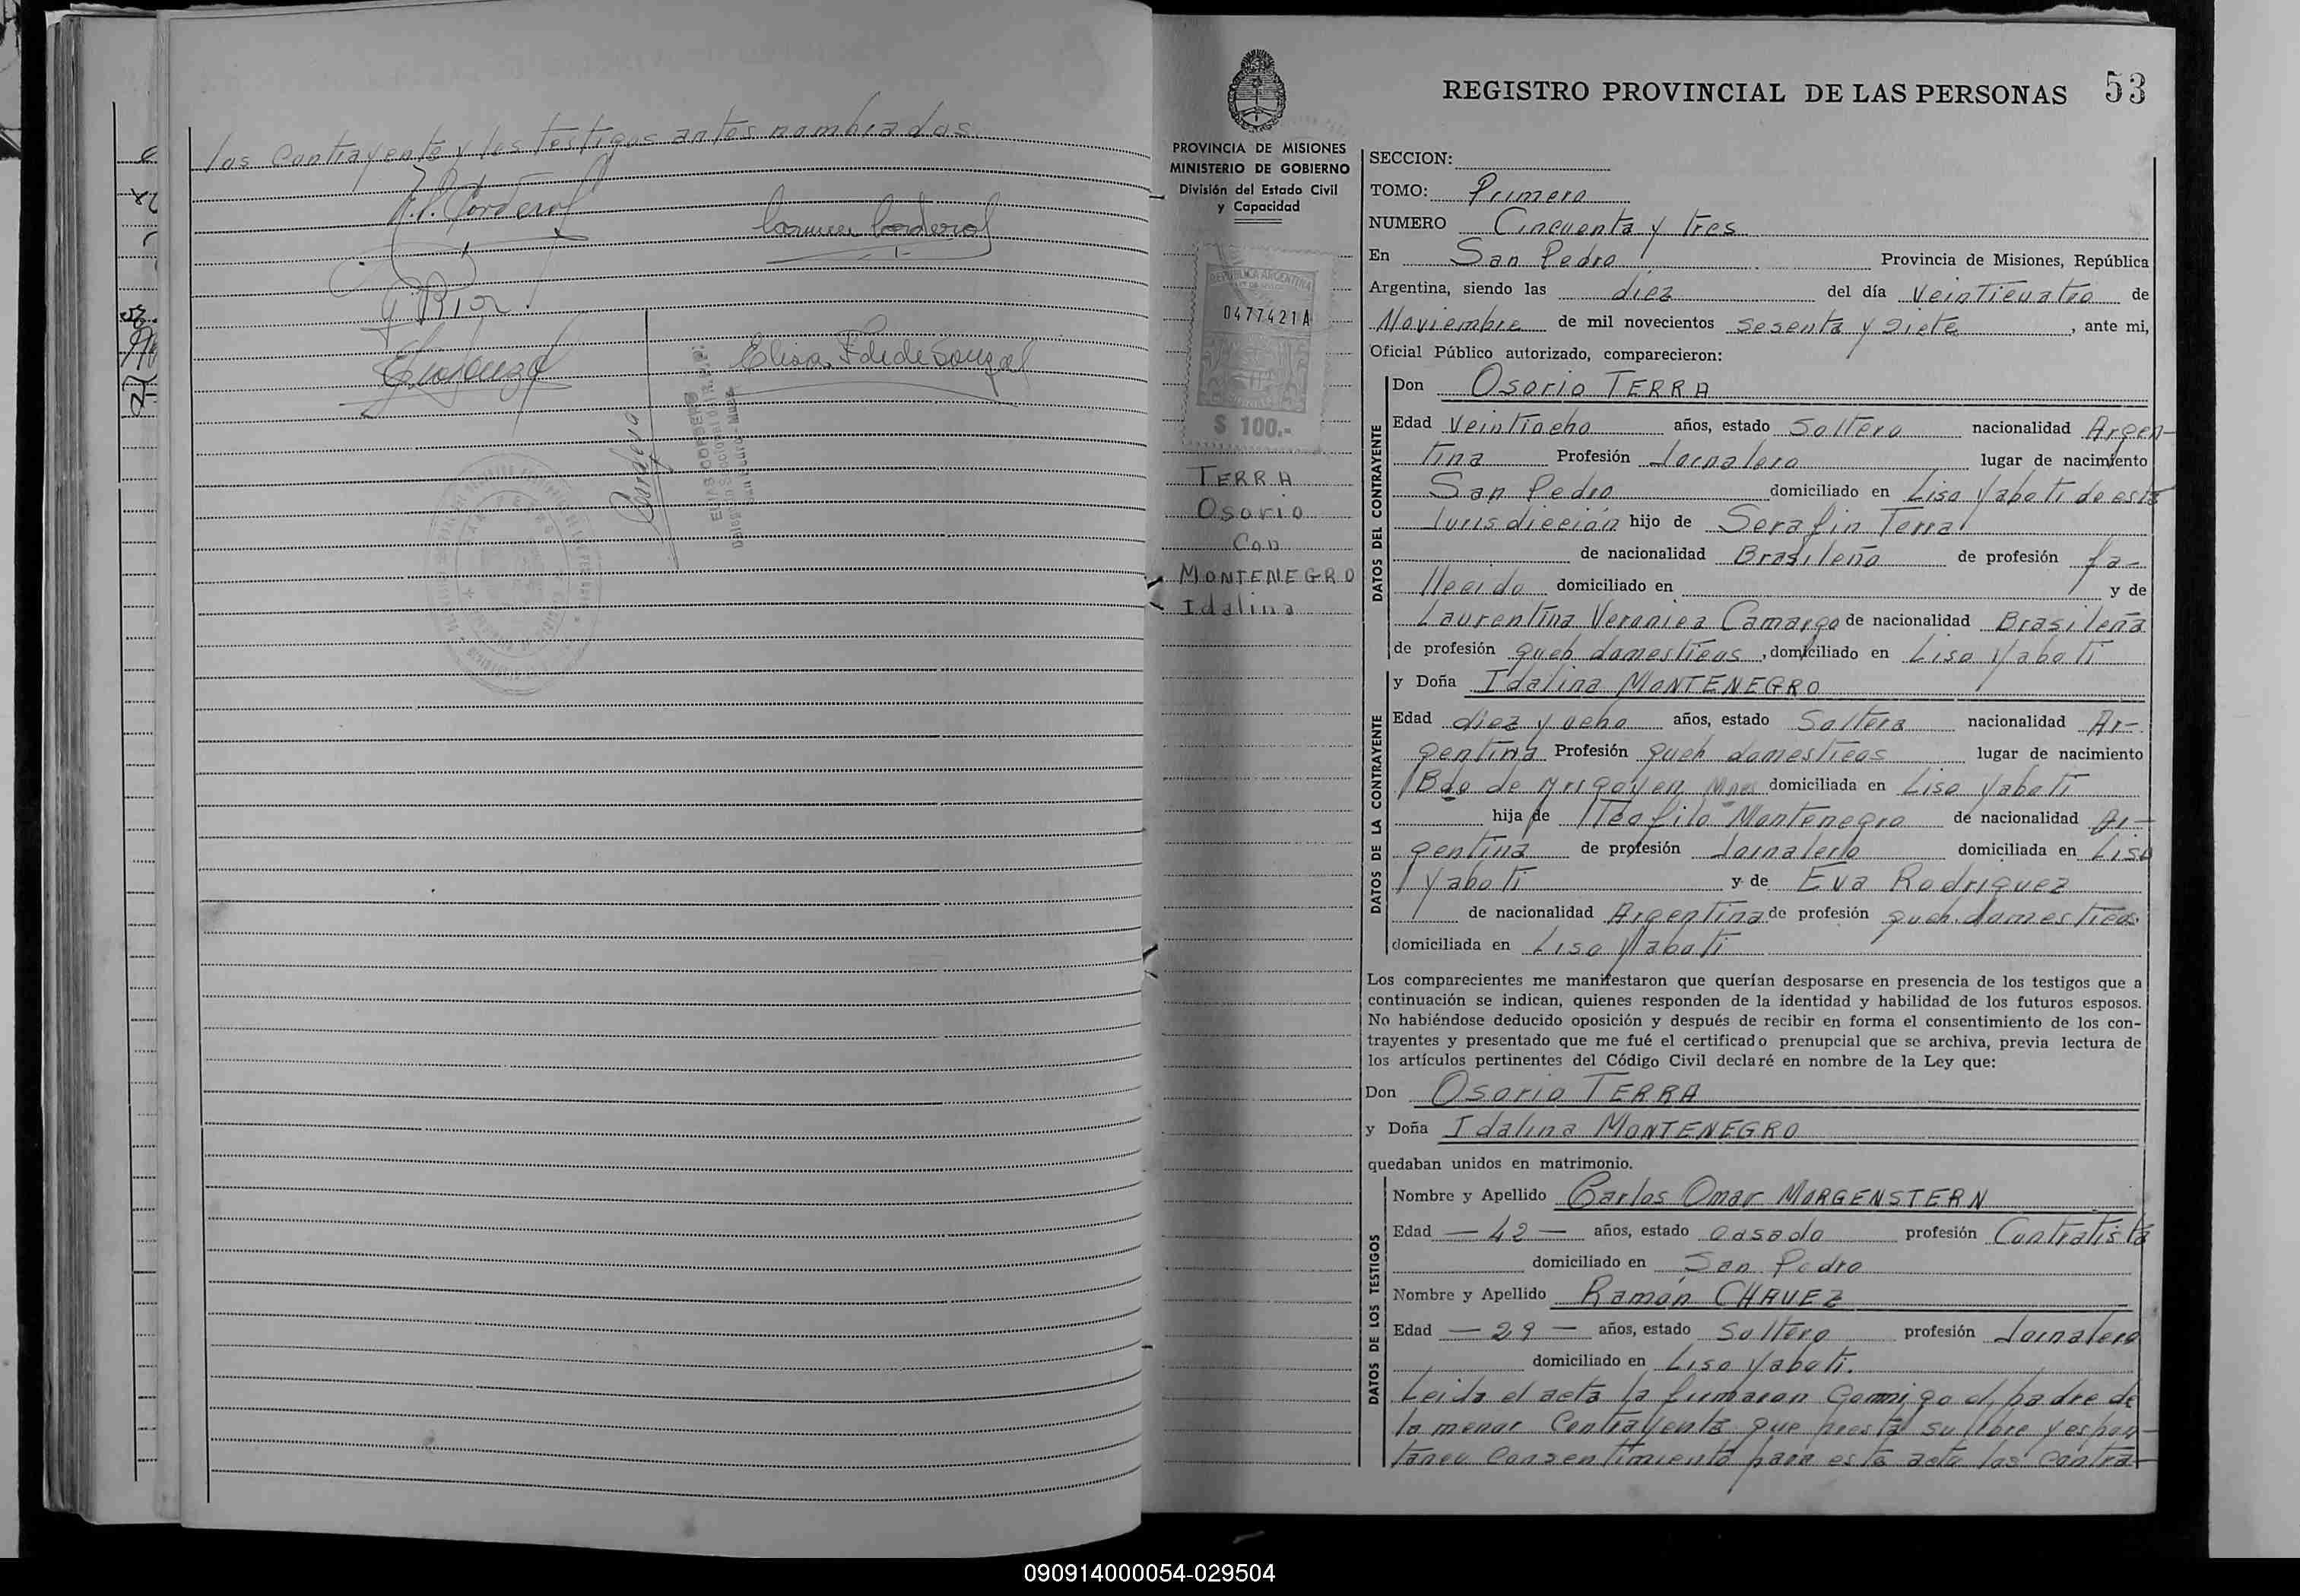 los Contrayente y los testigos antes nombrados.
Elisa F. de de Souza
REGISTRO PROVINCIAL DE LAS PERSONAS 53
PROVINCIA DE MISIONES
MINISTERIO DE GOBIERNO
División del Estado Civil
y Capacidad
REPUBLICA ARGENTINA
0477421A
$ 100.-
TERRA
Osorio
Con
MONTENEGRO
Idalina
SECCION:
TOMO: Primero
NUMERO Cincuenta y tres
En San Pedro Provincia de Misiones, República
Argentina, siendo las diez del día Veinticuatro de
Noviembre de mil novecientos sesenta y siete, ante mi,
Oficial Público autorizado, comparecieron:
DATOS DEL CONTRAYENTE
Don Osorio TERRA
Edad Veintiocho años, estado Soltero nacionalidad Argen-
tina Profesión Jornalero lugar de nacimiento
San Pedro domiciliado en Liso Yaboti de esta
Jurisdicción hijo de Serafin Terra
de nacionalidad Brasileña de profesión fa-
llecido domiciliado en y de
Laurentina Veronica Camargo de nacionalidad Brasileña
de profesión queh domesticos, domiciliado en Liso Yaboti
DATOS DE LA CONTRAYENTE
y Doña Idalina MONTENEGRO
Edad diez y ocho años, estado Soltera nacionalidad Ar-
gentina Profesión queh domesticos lugar de nacimiento
Bdo de Yrigoyen Mnes domiciliada en Liso Yaboti
hija de Teofilo Montenegro de nacionalidad Ar-
gentina de profesión Jornalero domiciliada en Liso
Yaboti y de Eva Rodriguez
de nacionalidad Argentina de profesión queh. domesticos.
domiciliada en Liso Yaboti
Los comparecientes me manifestaron que querían desposarse en presencia de los testigos que a
continuación se indican, quienes responden de la identidad y habilidad de los futuros esposos.
No habiéndose deducido oposición y después de recibir en forma el consentimiento de los con-
trayentes y presentado que me fué el certificado prenupcial que se archiva, previa lectura de
los artículos pertinentes del Código Civil declaré en nombre de la Ley que:
Don Osorio TERRA
y Doña Idalina MONTENEGRO
quedaban unidos en matrimonio.
DATOS DE LOS TESTIGOS
Nombre y Apellido Carlos Omar MORGENSTERN
Edad — 42 — años, estado casado profesión Contratista
domiciliado en San Pedro
Nombre y Apellido Ramón CHAVEZ
Edad — 29 — años, estado Soltero profesión Jornalero
domiciliado en Liso Yaboti.
Leida el acta la firmaron Conmigo el padre de
la menor Contrayente que presta su libre y espon-
taneo consentimiento para este acto los contra-
090914000054-029504